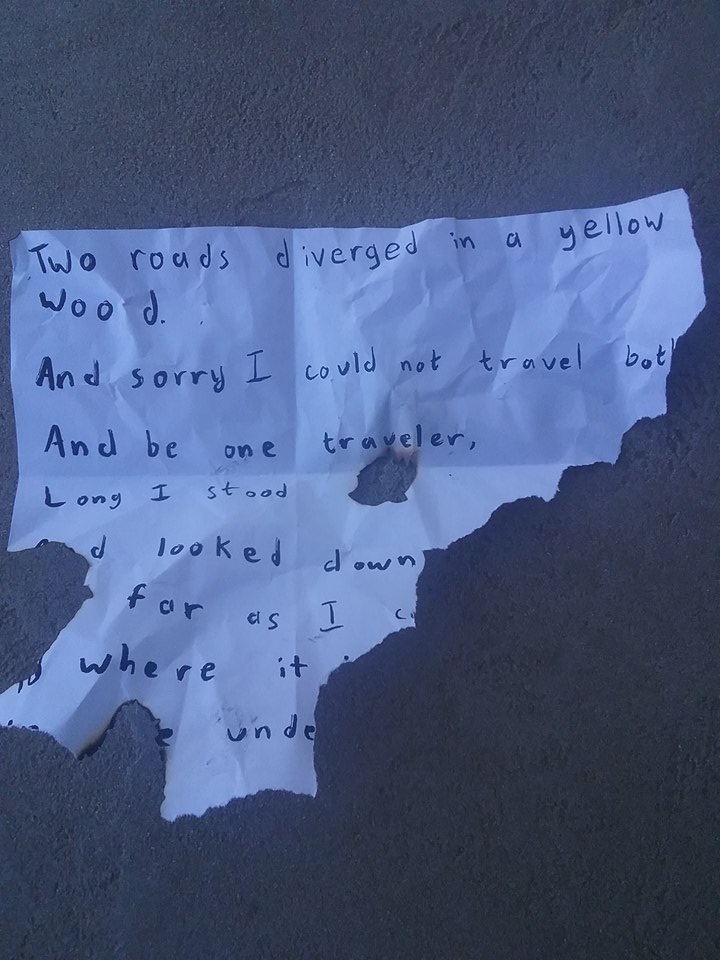 Two roads diverged in a yellow
wood.
And sorry I could not travel
And be one traveler,
Long I stood
looked down
far as I
where it